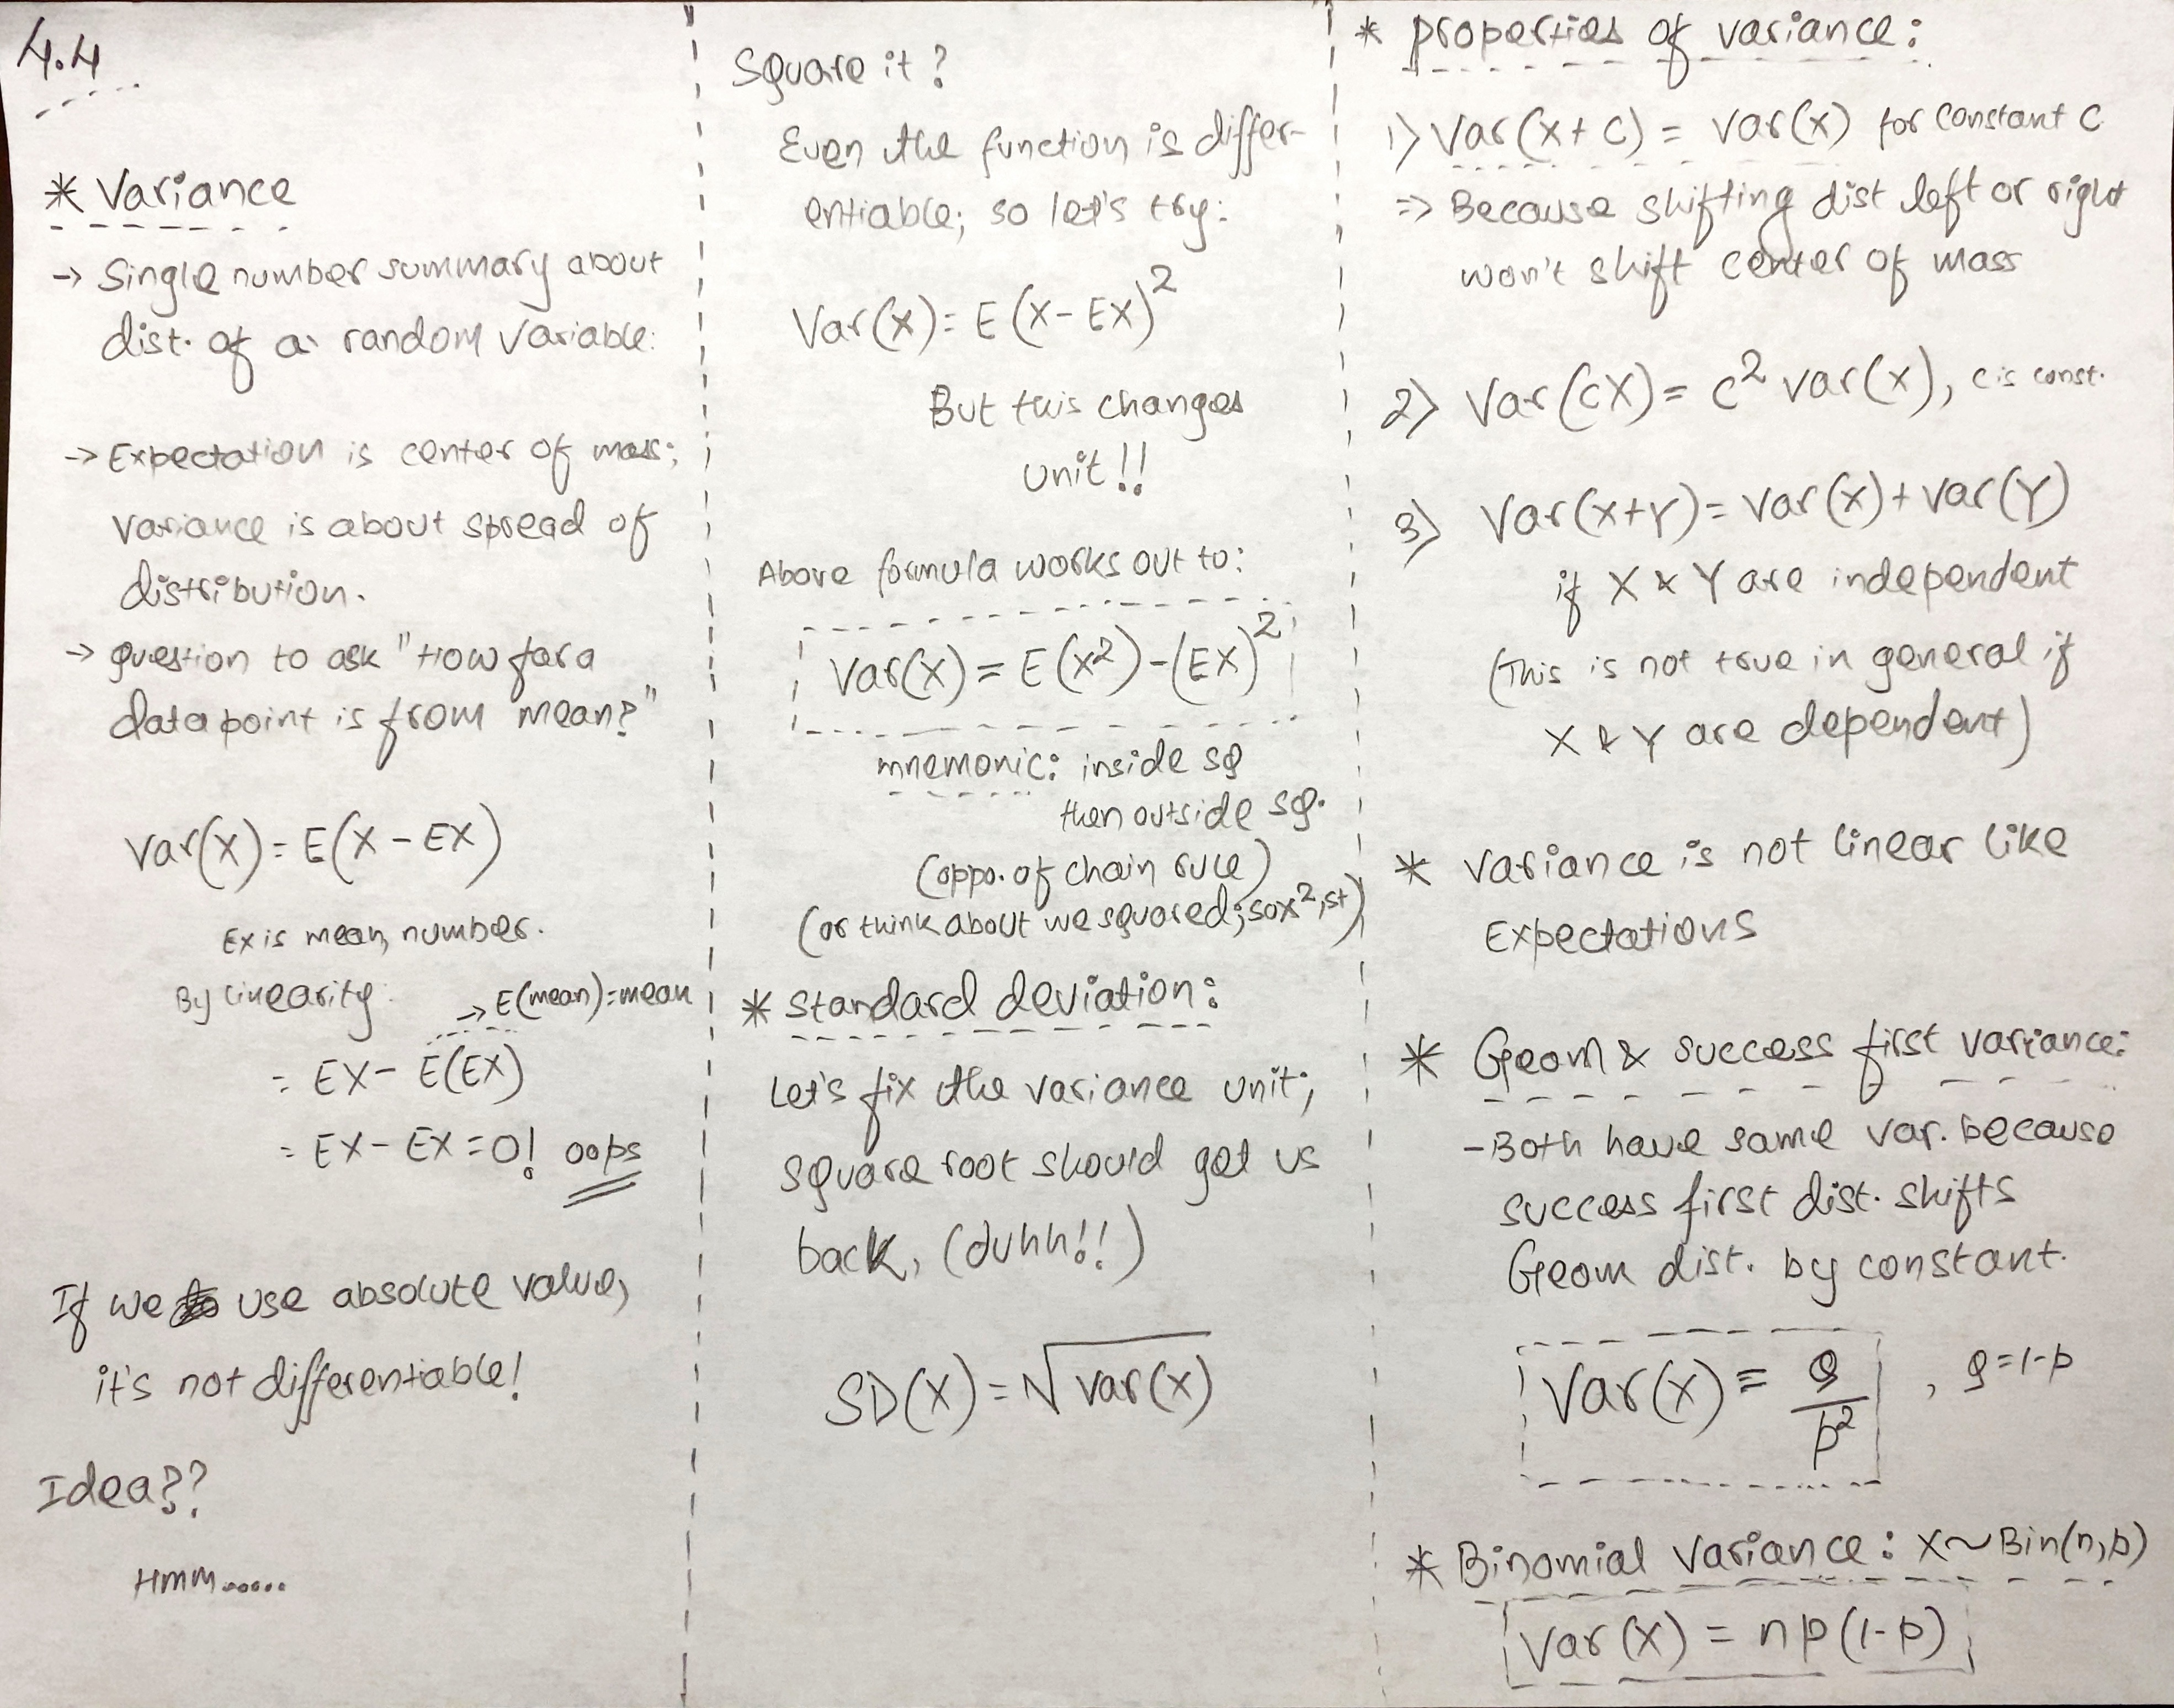 4.4
* Variance
→ Single number summary about
dist. of a random variable.
→ Expectation is center of mass;
variance is about spread of
distribution.
→ question to ask "How far a
data point is from mean?"
Var(X) = E(X - EX)
EX is mean, number.
By linearity:
→ E(mean) = mean
= EX - E(EX)
= EX - EX = 0! oops
If we use absolute value,
it's not differentiable!
Idea??
Hmm.....
Square it?
Even the function is differ-
entiable; so let's try:
Var(X) = E(X - EX)²
But this changes
unit!!
Above formula works out to:
Var(X) = E(X²) - (EX)²
mnemonic: inside sq
then outside sq.
(oppo. of chain rule)
(or think about we squared; so x², 1st)
* Standard deviation:
Let's fix the variance unit;
square root should get us
back, (duhh!!)
SD(X) = √var(X)
* properties of variance:
1) Var(X + C) = Var(X) for constant C
⇒ Because shifting dist left or right
won't shift center of mass
2) Var(CX) = C² var(X), C is const.
3) Var(X+Y) = Var(X) + Var(Y)
if X & Y are independent
(This is not true in general if
X & Y are dependent)
* Variance is not linear like
Expectations
* Geom & success first variance:
- Both have same var. because
success first dist. shifts
Geom dist. by constant.
Var(X) = q/p² , q = 1-p
* Binomial Variance: X~Bin(n,p)
Var(X) = np(1-p)